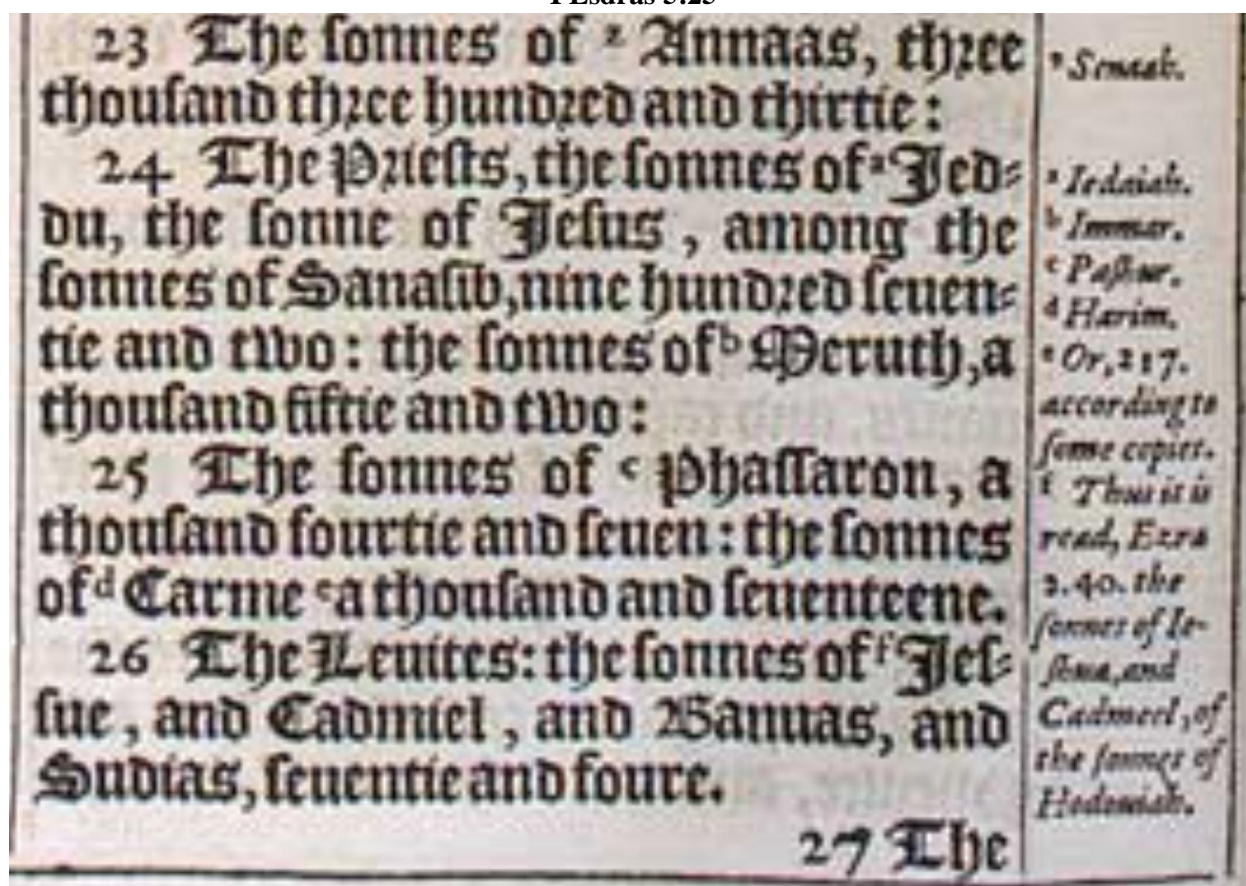 23 The sonnes of ᶻ Annaas, three
thousand three hundred and thirtie:
24 The Priests, the sonnes of ᵃ Jed-
du, the sonne of Jesus, among the
sonnes of Sanasib, nine hundred seuen-
tie and two: the sonnes of ᵇ Meruth, a
thousand fiftie and two:
25 The sonnes of ᶜ Phassaron, a
thousand fourtie and seuen: the sonnes
of ᵈ Carme ᵉ a thousand and seuenteene.
26 The Leuites: the sonnes of ᶠ Jes-
sue, and Cadmiel, and Bannas, and
Sudias, seuentie and foure.
27 The
ᶻ Senaah.
ᵃ Iedaiah.
ᵇ Immar.
ᶜ Pashur.
ᵈ Harim.
ᵉ Or, 217.
according to
some copies.
ᶠ Thus it is
read, Ezra
2.40. the
sonnes of Ie-
shua, and
Cadmeel, of
the sonnes of
Hodouiah.